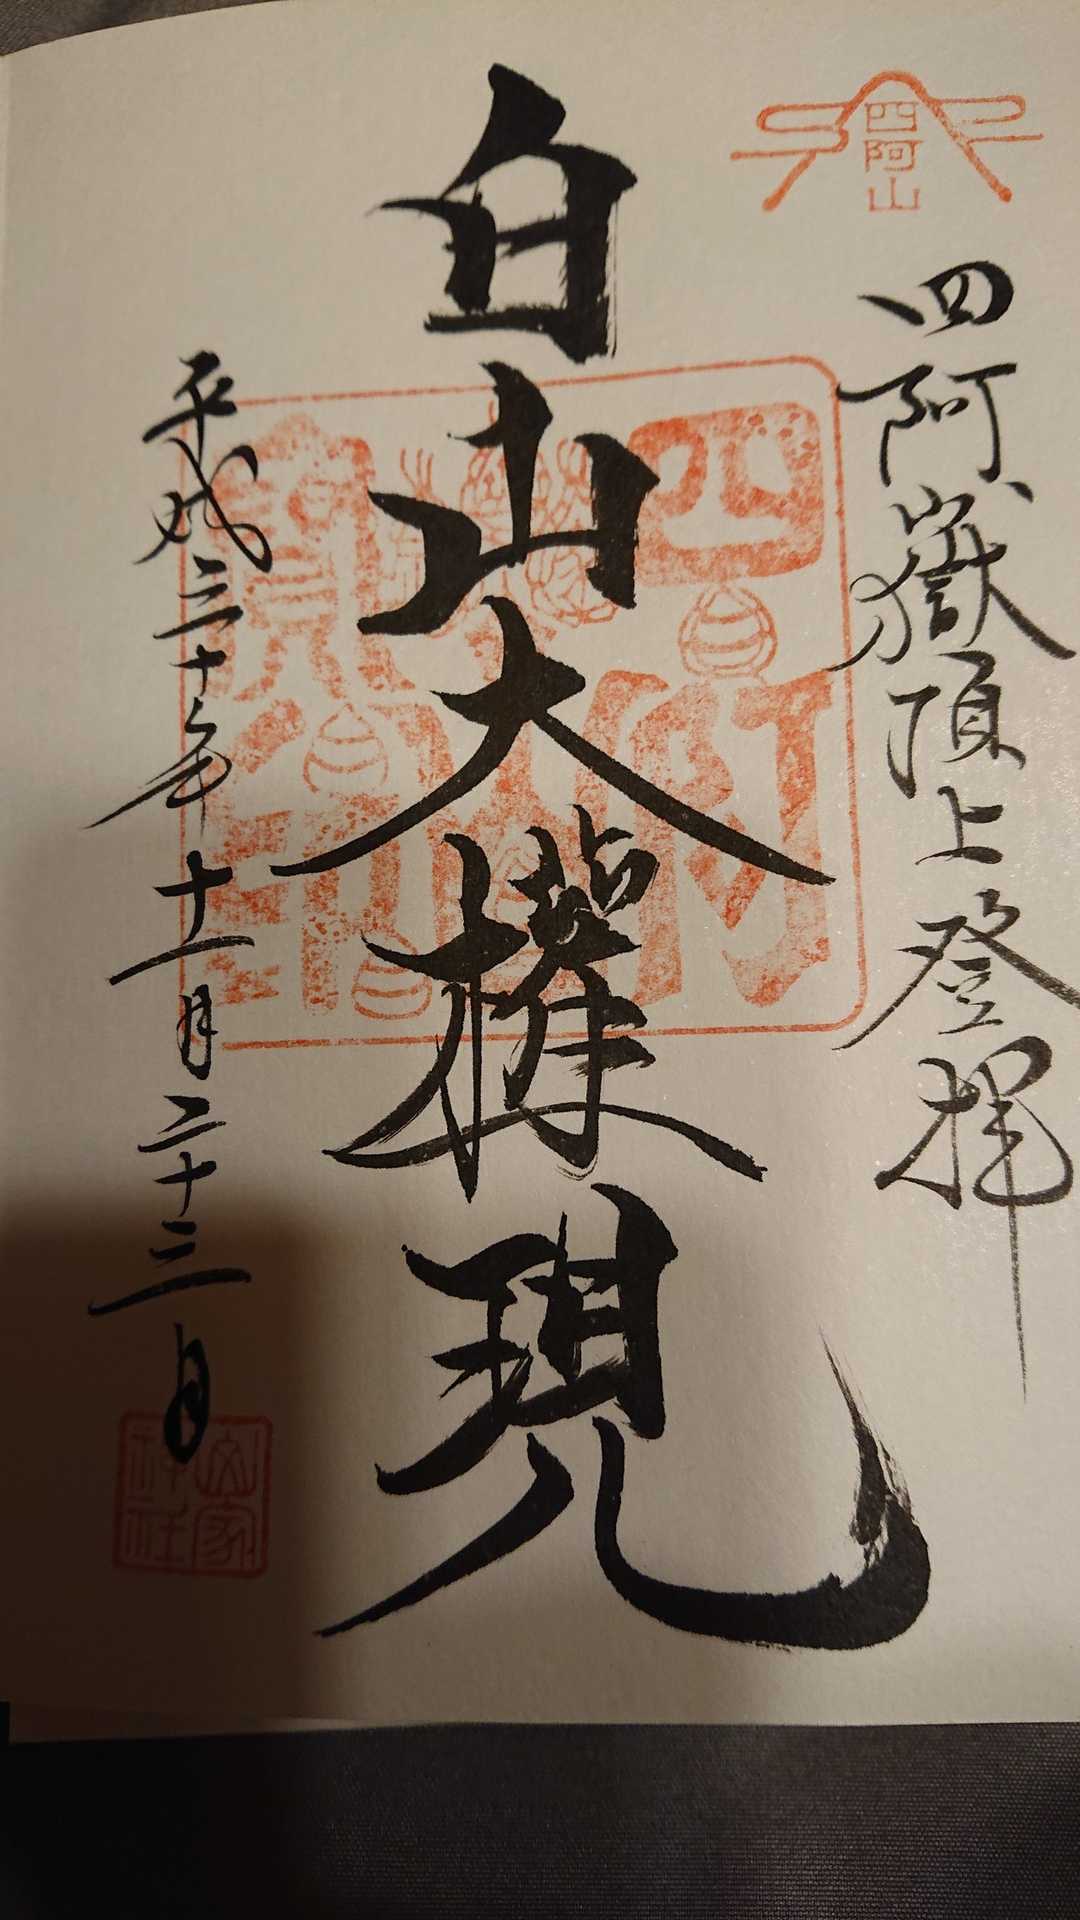 四阿山
四阿嶽頂上登拝
白山大権現
四阿山
寳印
平成三十年十一月二十三日
山家神社